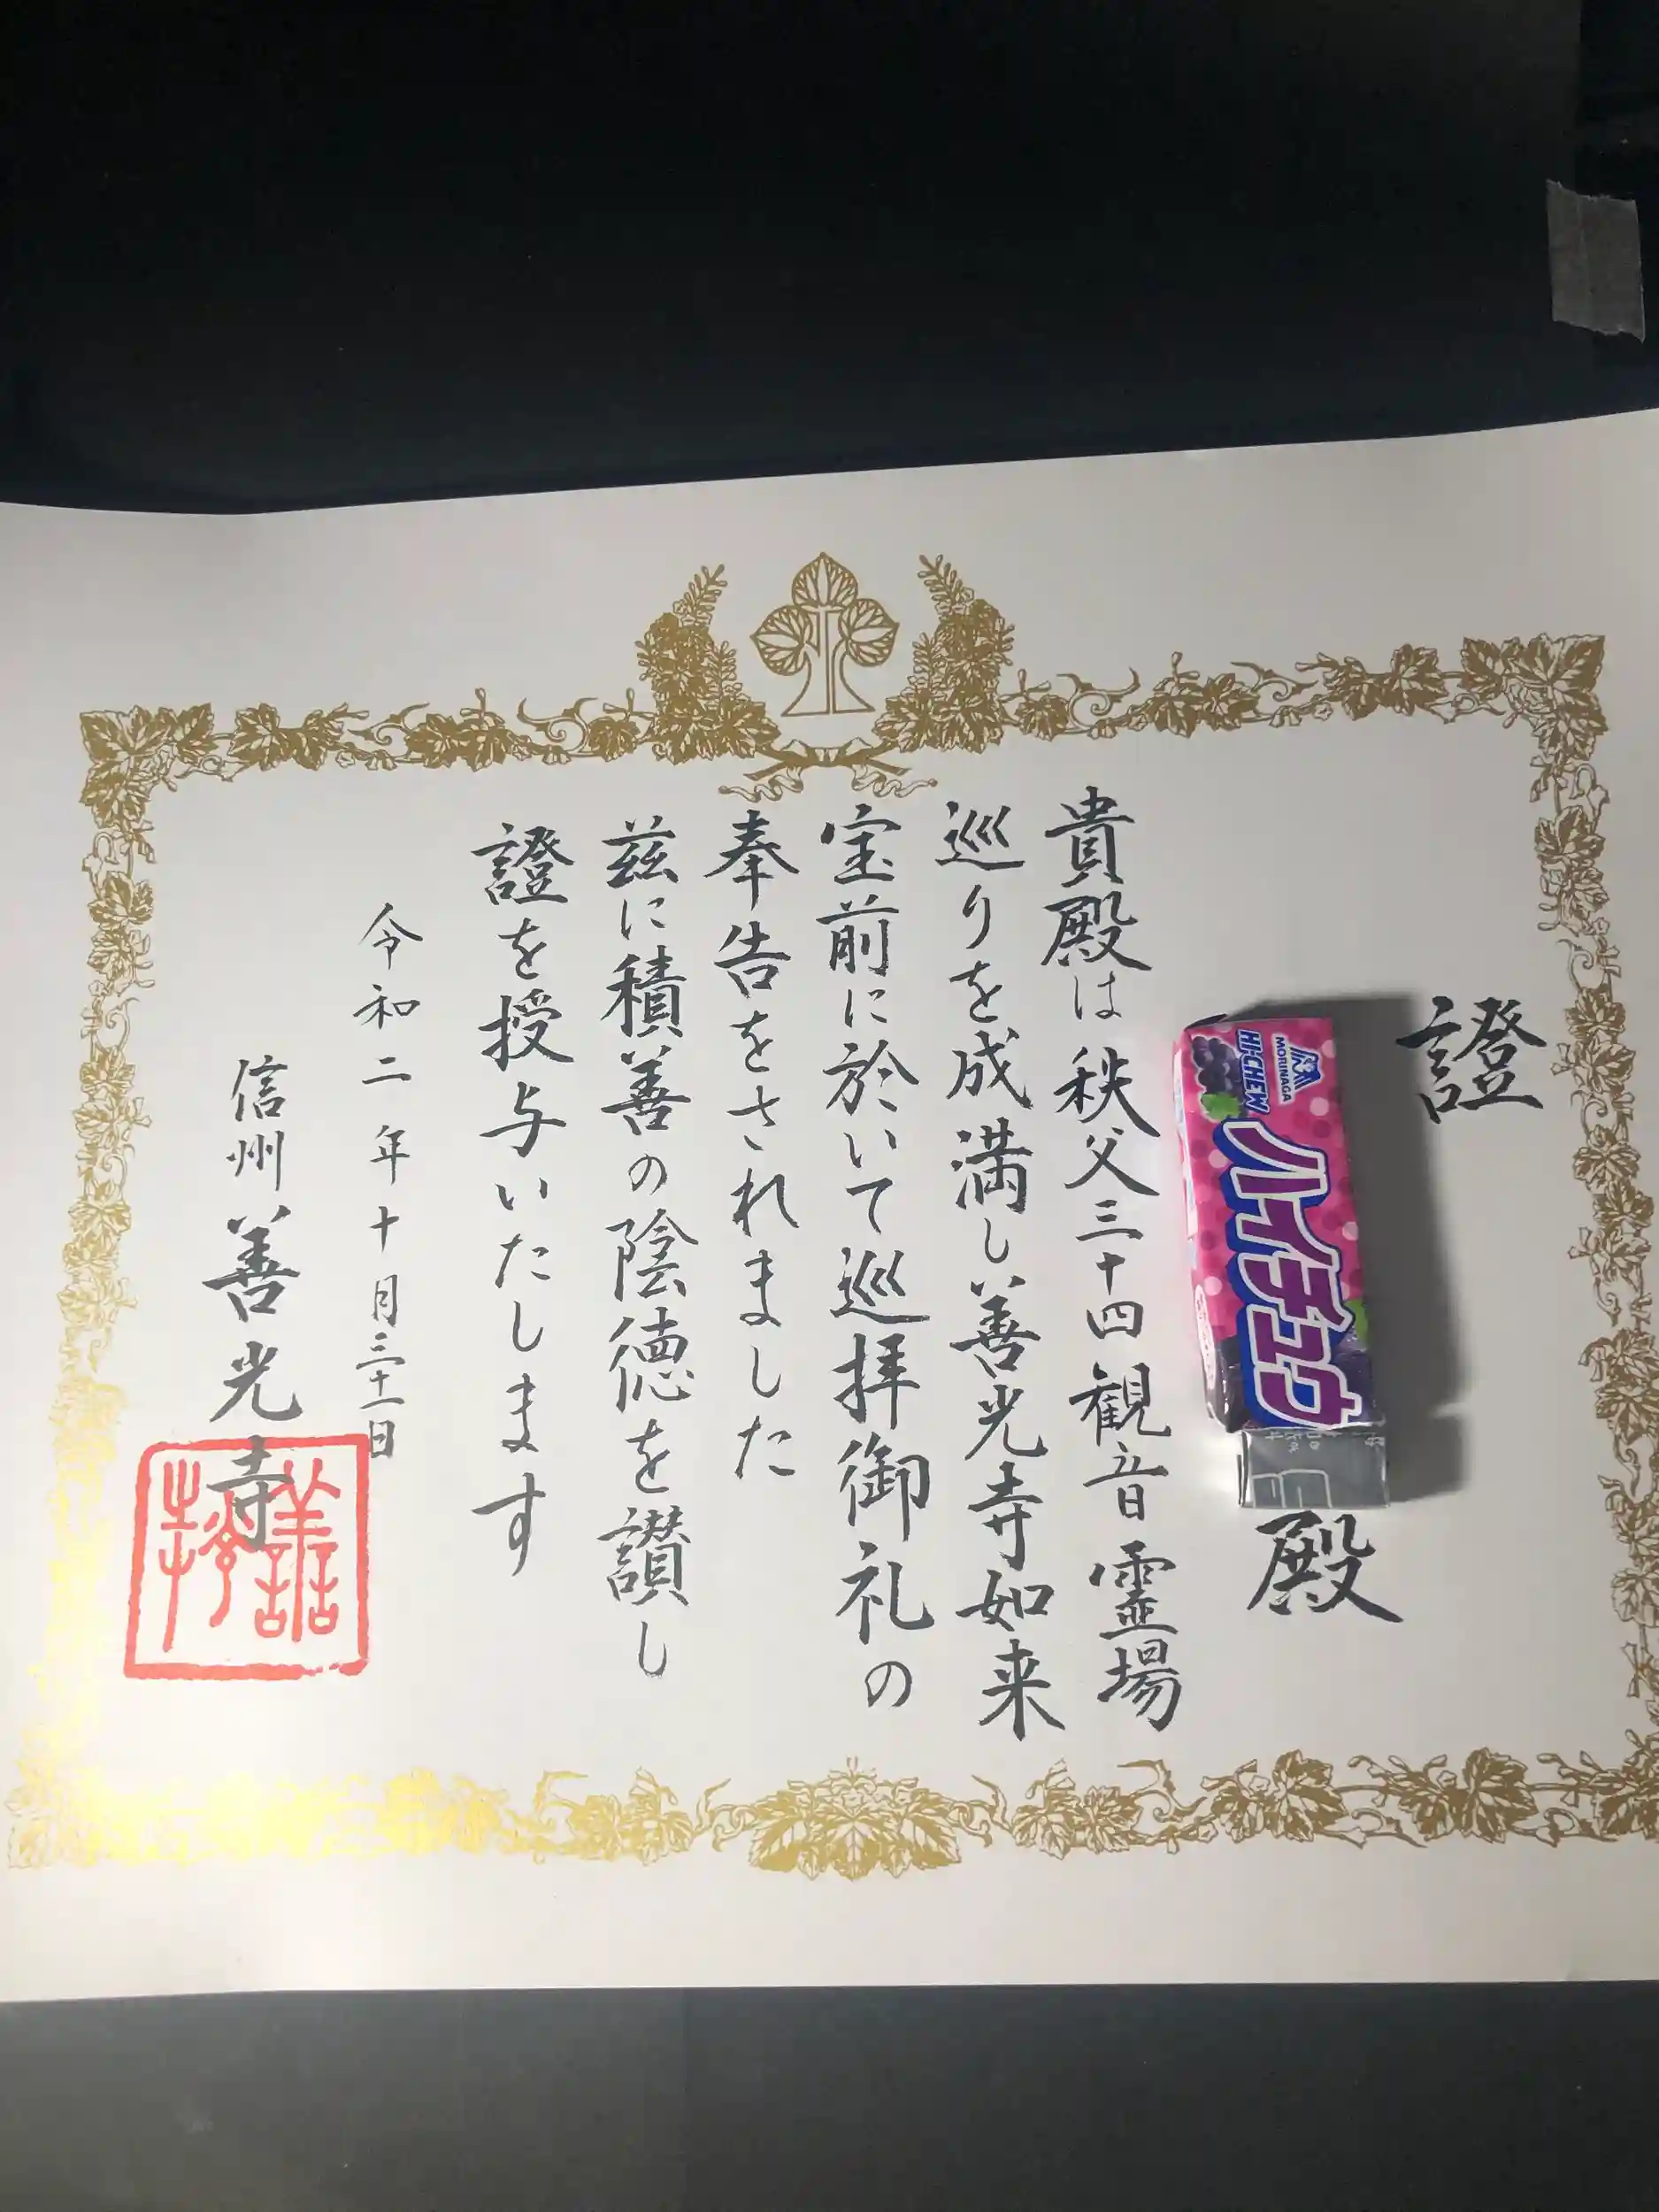 證
MORINAGA
HI-CHEW
ハイチュウ
殿
貴殿は秩父三十四観音霊場
巡りを成満し善光寺如来
宝前に於いて巡拝御礼の
奉告をされました
茲に積善の陰徳を讃し
證を授与いたします
令和二年十月三十一日
信州善光寺